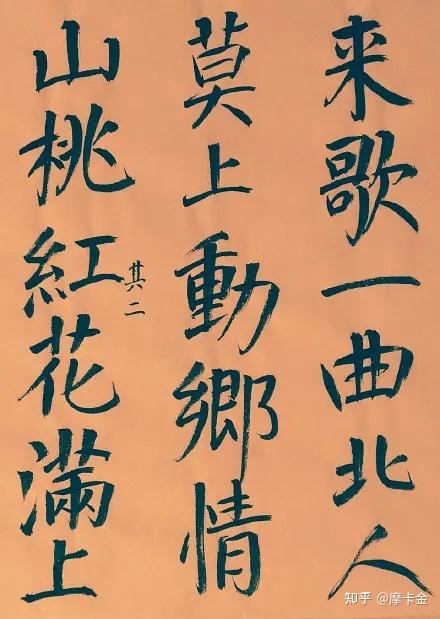 来歌一曲北人
莫上動鄉情
其二
山桃紅花滿上
知乎 @摩卡金